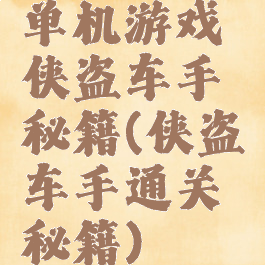 单机游戏
侠盗车手
秘籍(侠盗
车手通关
秘籍)